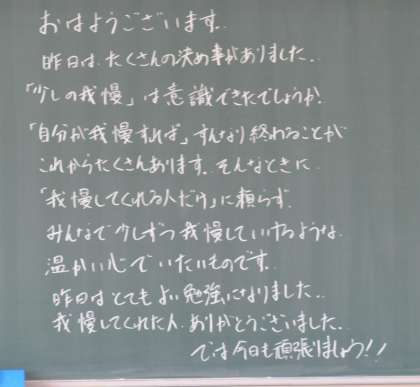 おはようございます。
昨日は、たくさんの決め事がありました。
「少しの我慢」は意識できたでしょうか。
「自分が我慢すれば」すんなり終わることが
これからたくさんあります。そんなときに、
「我慢してくれる人だけ」に頼らず、
みんなで少しずつ我慢していけるような、
温かい心でいたいものです。
昨日はとてもよい勉強になりました。
我慢してくれた人、ありがとうございました。
では今日も頑張りましょう!!